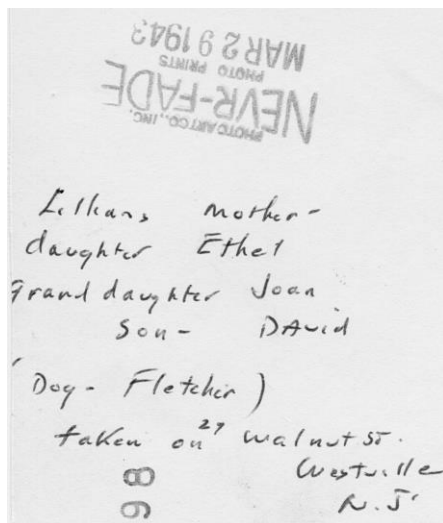 NEVR-FADE
PHOTO ART CO., INC.
PHOTO PRINTS
MAR 29 1943
Lillians mother-
daughter Ethel
Grand daughter Joan
Son- DAvid
(Dog- Fletcher)
taken on 27 walnut St.
Westville
N. J.
86